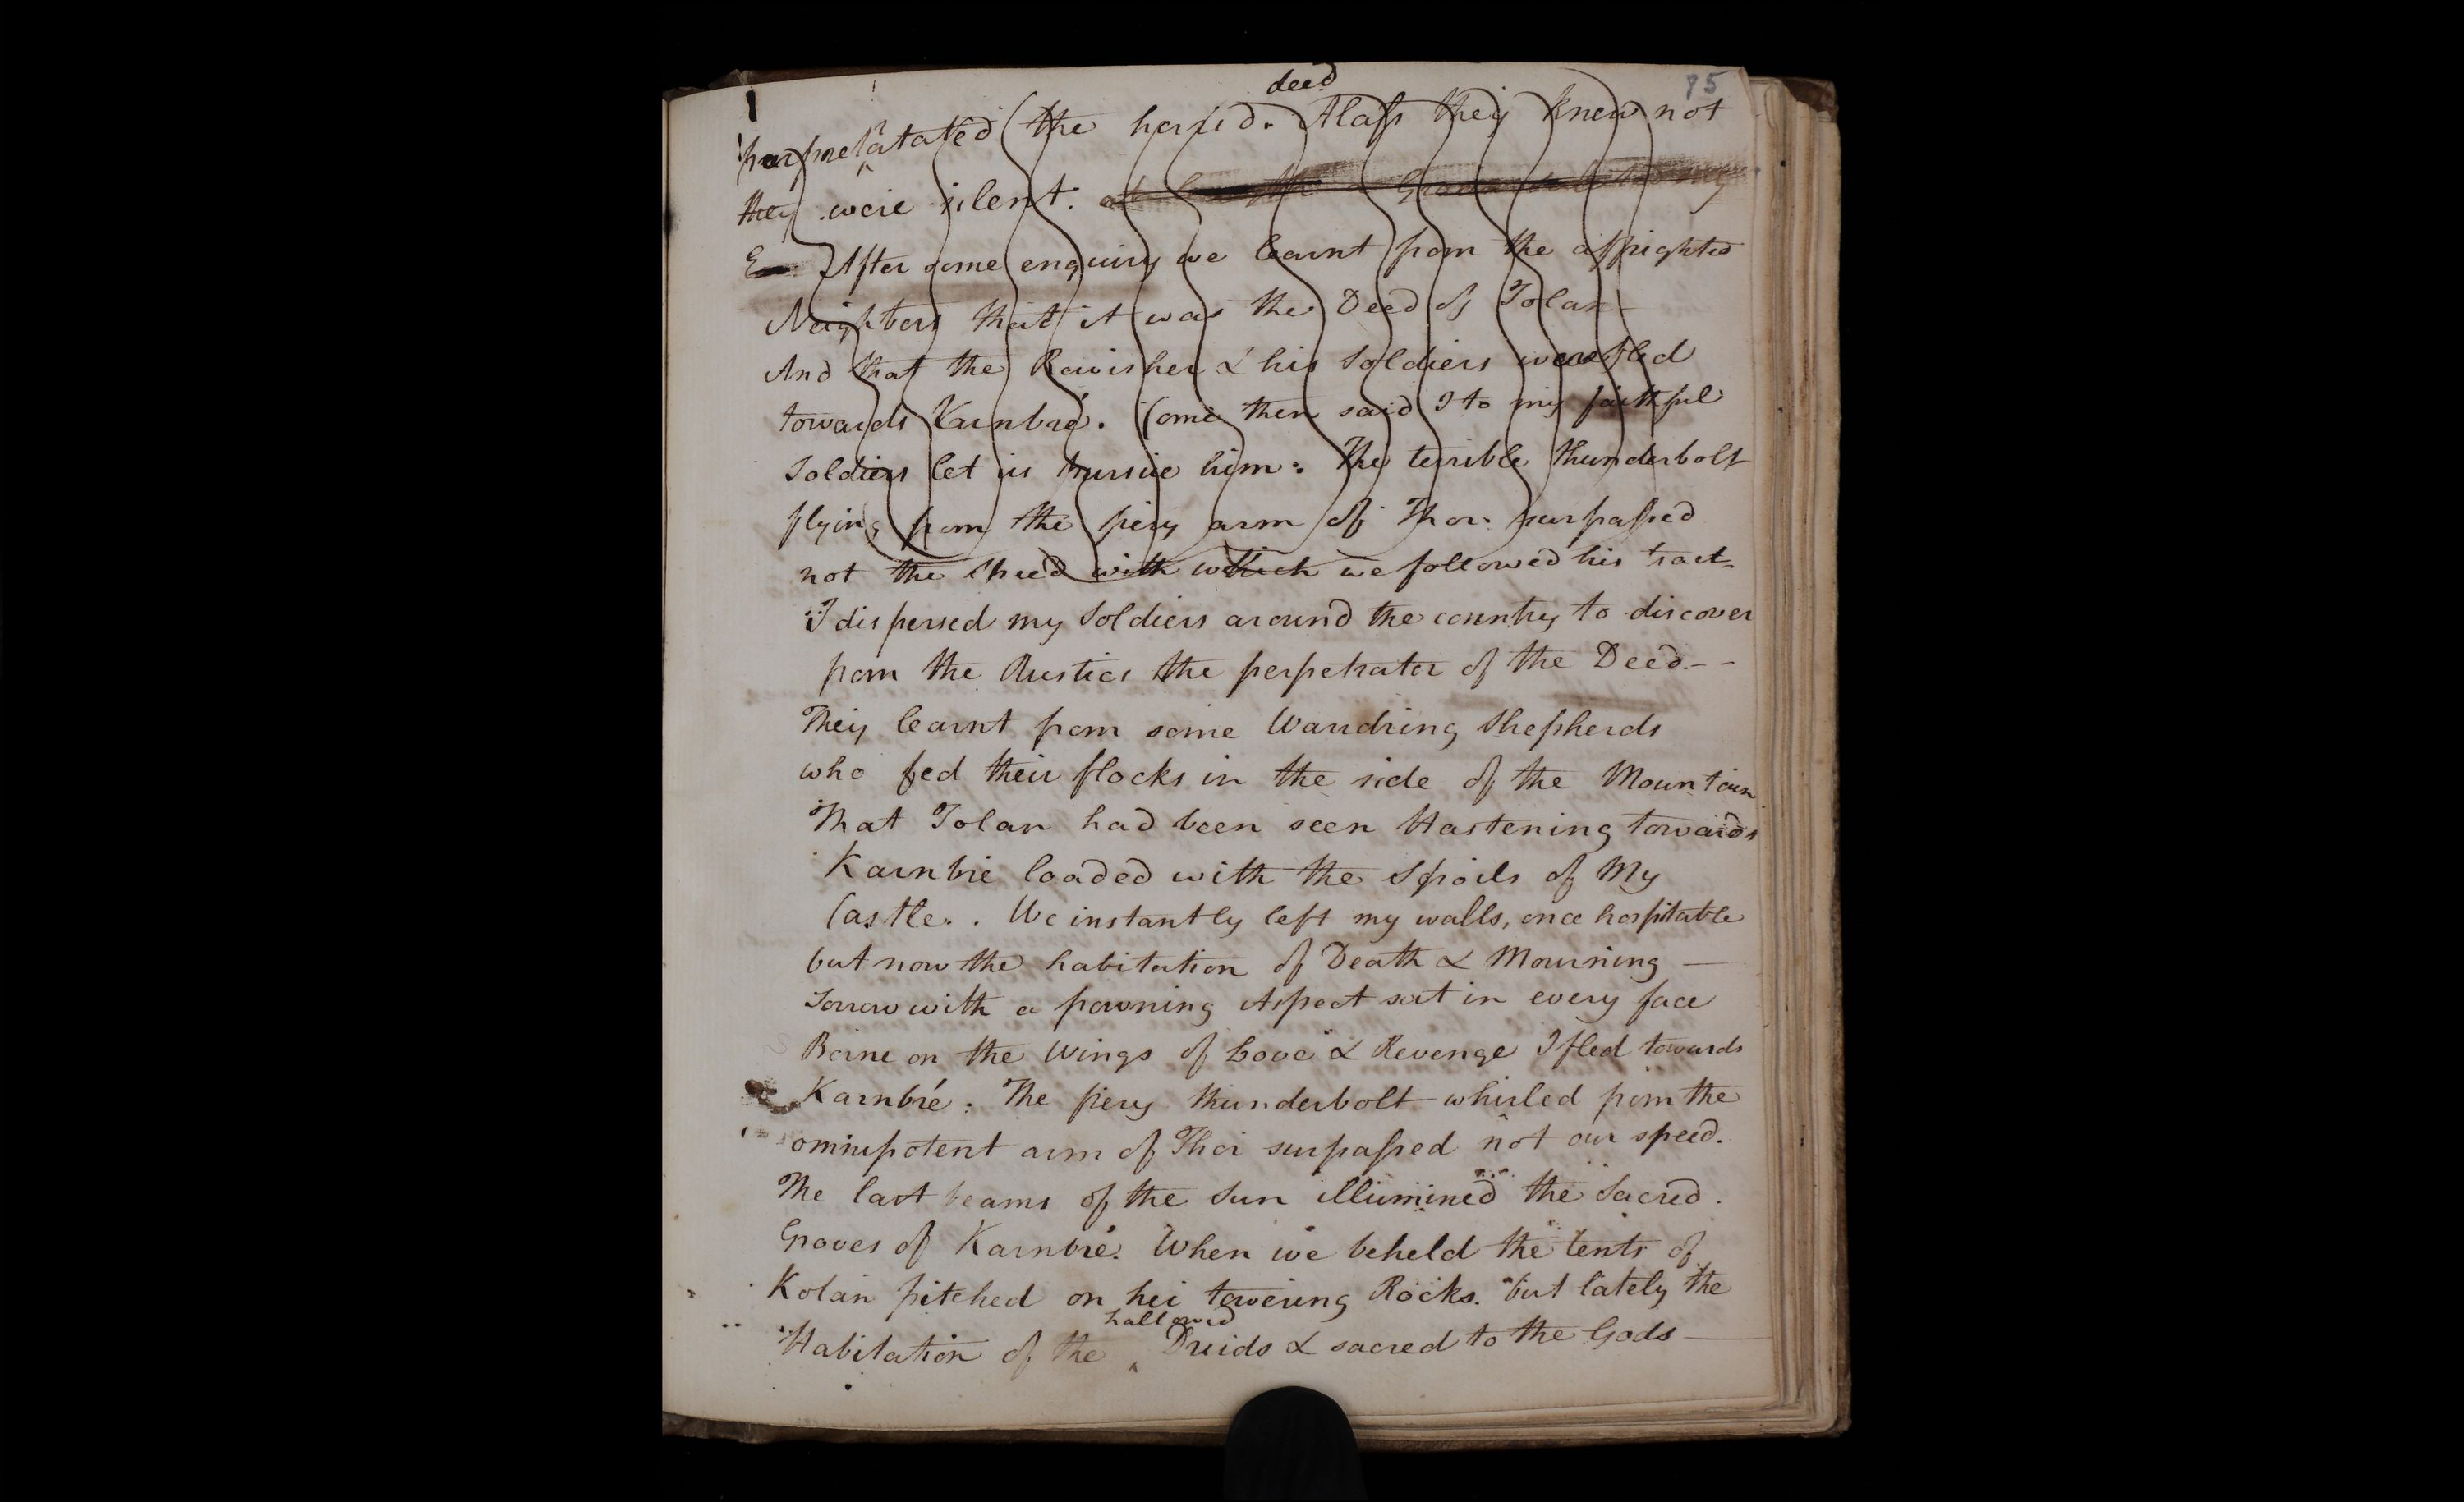 75
deed
perpretatated the horrid. Alass they knew not
they were silent.
After some enquiry we learnt from the affrighted
Neighbors that it was the Deed of Tolan
And that the Ravisher & his Soldiers were fled
towards Karnbré. Come then said I to my faithful
Soldiers let us pursue him: The terrible thunderbolt
flying from the fiery arm of Thor surpassed
not the speed with which we followed his tract
I dispersed my Soldiers around the country to discover
from the Rustics the perpetrator of the Deed. - -
They learnt from some Wandring Shepherds
who fed their flocks in the side of the Mountain
That Tolan had been seen Hastening towards
Karnbré loaded with the Spoils of My
Castle. . We instantly left my walls, once hospitable
but now the habitation of Death & Mourning —
Sorrow with a frowning Aspect sat in every face
Borne on the Wings of Love & Revenge I fled towards
Karnbré. The fiery thunderbolt whirled from the
omnipotent arm of Thor surpassed not our speed.
The last beams of the Sun illumined the Sacred.
Groves of Karnbré. When we beheld the tents of
Kolan pitched on her towering Rocks. but lately the
hallowed
Habitation of the ^ Druids & sacred to the Gods —